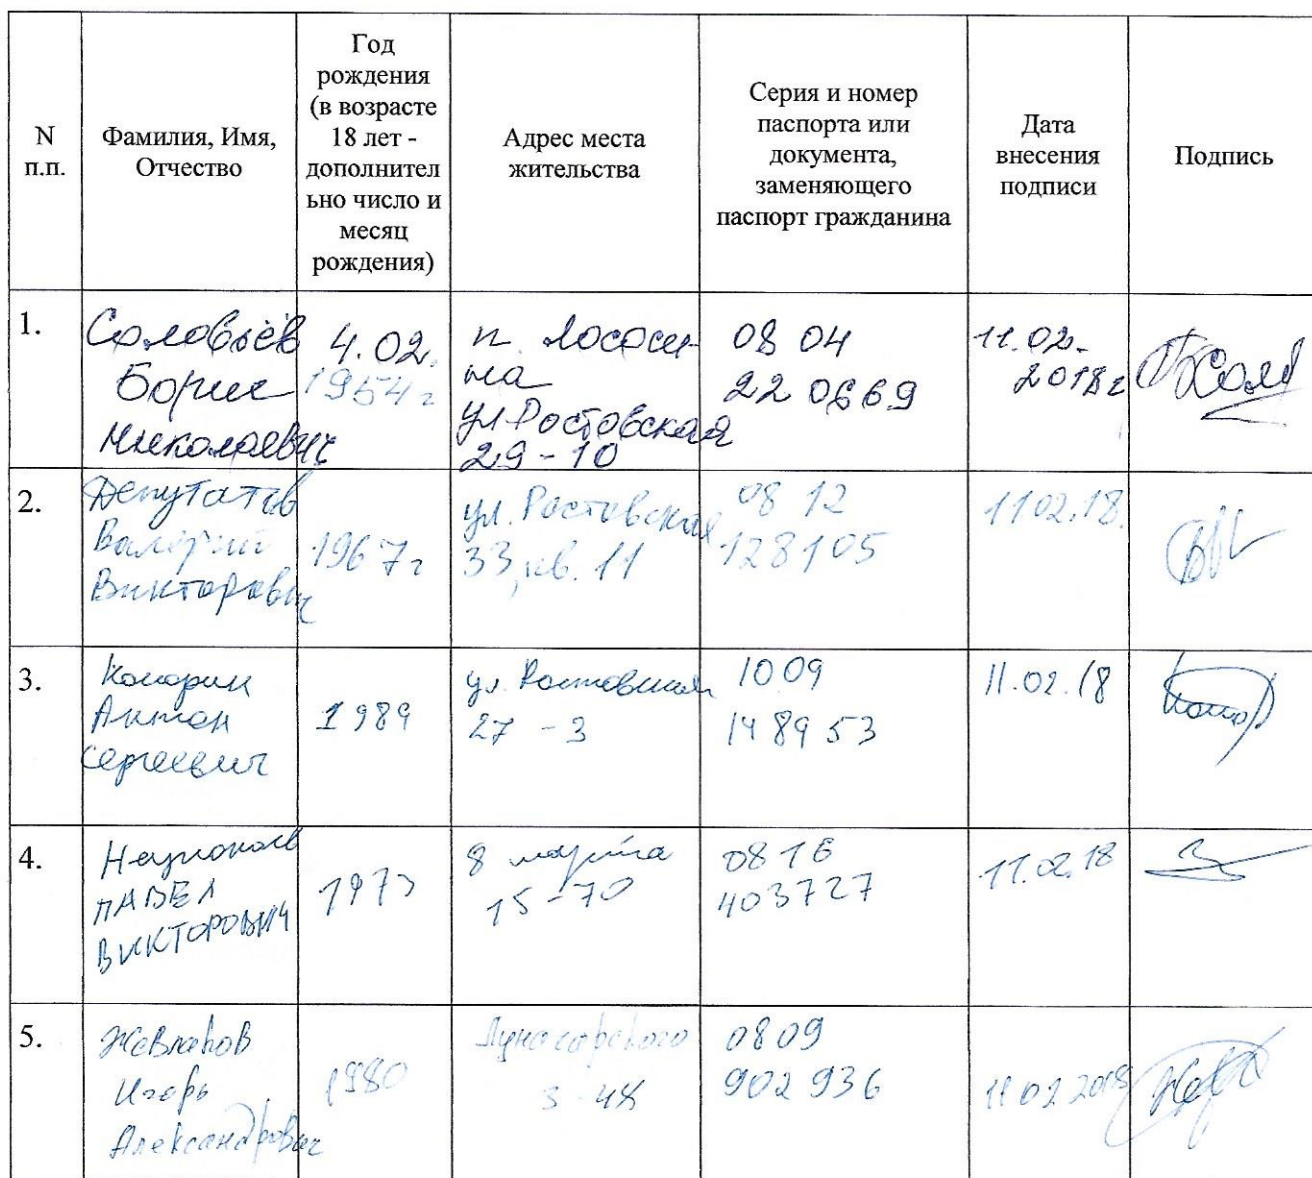 N п.п.
Фамилия, Имя, Отчество
Год рождения (в возрасте 18 лет - дополнител ьно число и месяц рождения)
Адрес места жительства
Серия и номер паспорта или документа, заменяющего паспорт гражданина
Дата внесения подписи
Подпись
1.
Соловьёв
Борис
Николаевич
4.02.
1954г
п. Лососи-
на
ул Ростовская
29-10
08 04
22 0669
11.02.
2018г
2.
Депутатов
Валерий
Викторович
1967г
ул. Ростовская
33, кв. 11
08 12
128105
11 02.18.
3.
Антон
Сергеевич
1989
ул. Ростовская
27 - 3
1009
148953
11.02.18
4.
ПАВЕЛ
ВИКТОРОВИЧ
1973
8 марта
15-70
08 16
403727
11.02.18
5.
Жевлаков
Игорь
Александрович
1980
Луначарского
3-48
0809
902 936
11 02 2018